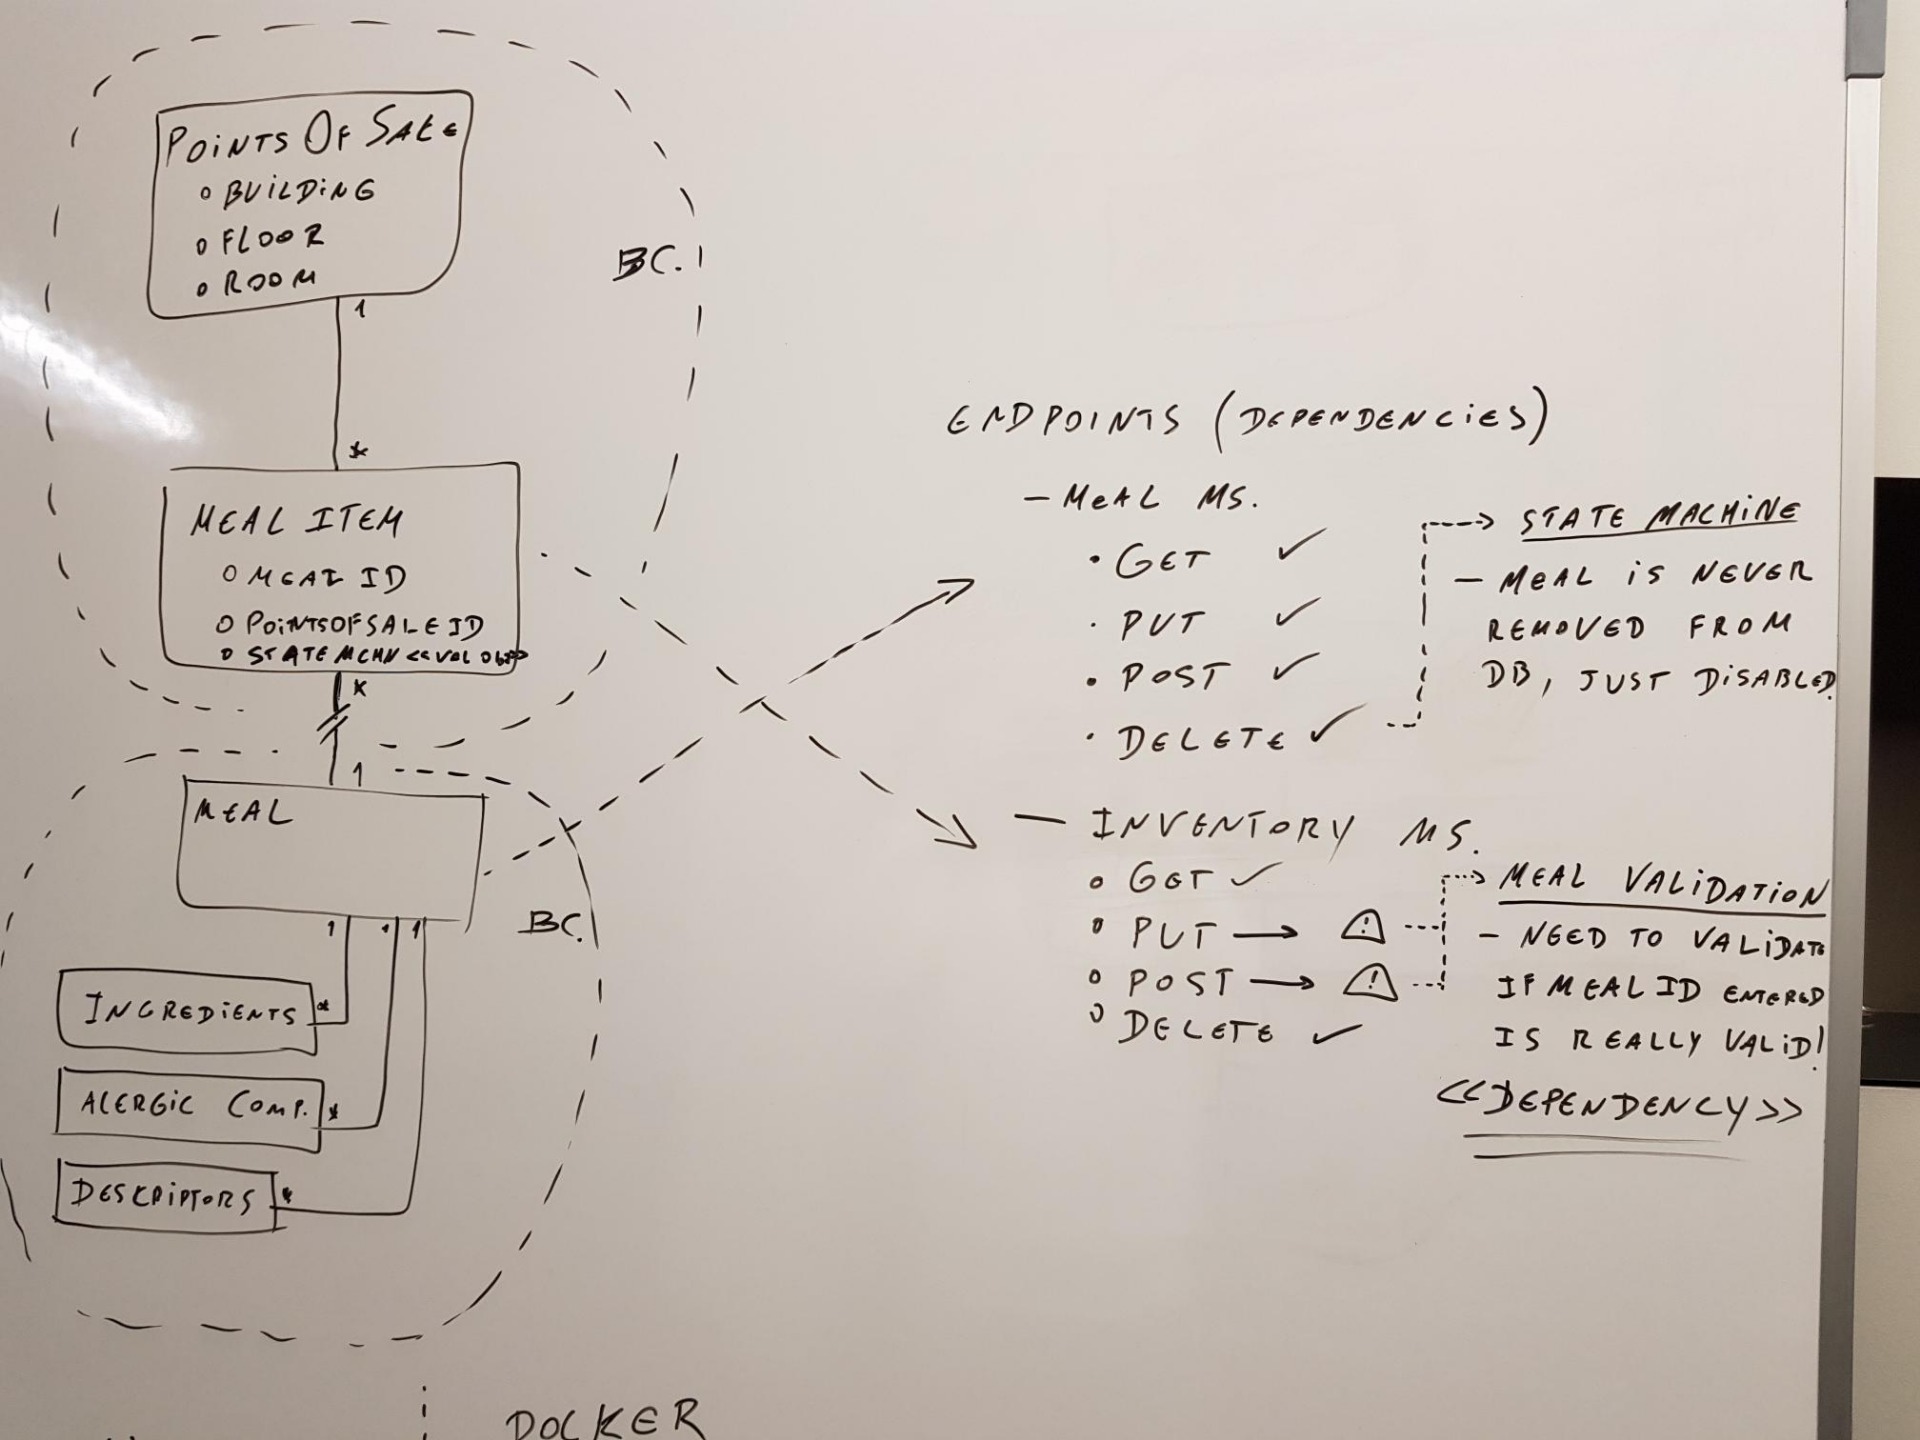 POINTS OF SALE
BUILDING
FLOOR
ROOM
1
*
BC.
MEAL ITEM
MEAL ID
POINTSOFSALE ID
STATE MCHN <<VAL OBJ>>
*
1
MEAL
BC.
1
1
1
INGREDIENTS *
ALERGIC COMP. *
DESCRIPTORS *
DOCKER
ENDPOINTS (DEPENDENCIES)
- MEAL MS.
• GET ✓
• PUT ✓
• POST ✓
• DELETE ✓
STATE MACHINE
- MEAL IS NEVER
REMOVED FROM
DB, JUST DISABLED.
- INVENTORY MS.
GET ✓
PUT → ⚠
POST → ⚠
DELETE ✓
MEAL VALIDATION
- NEED TO VALIDATE
IF MEAL ID ENTERED
IS REALLY VALID!
<<DEPENDENCY>>